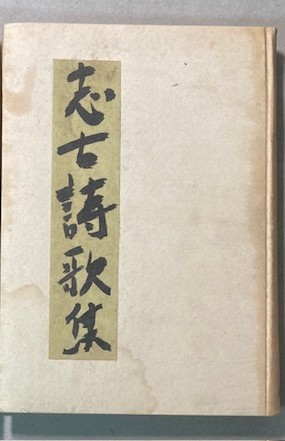 志古詩歌集